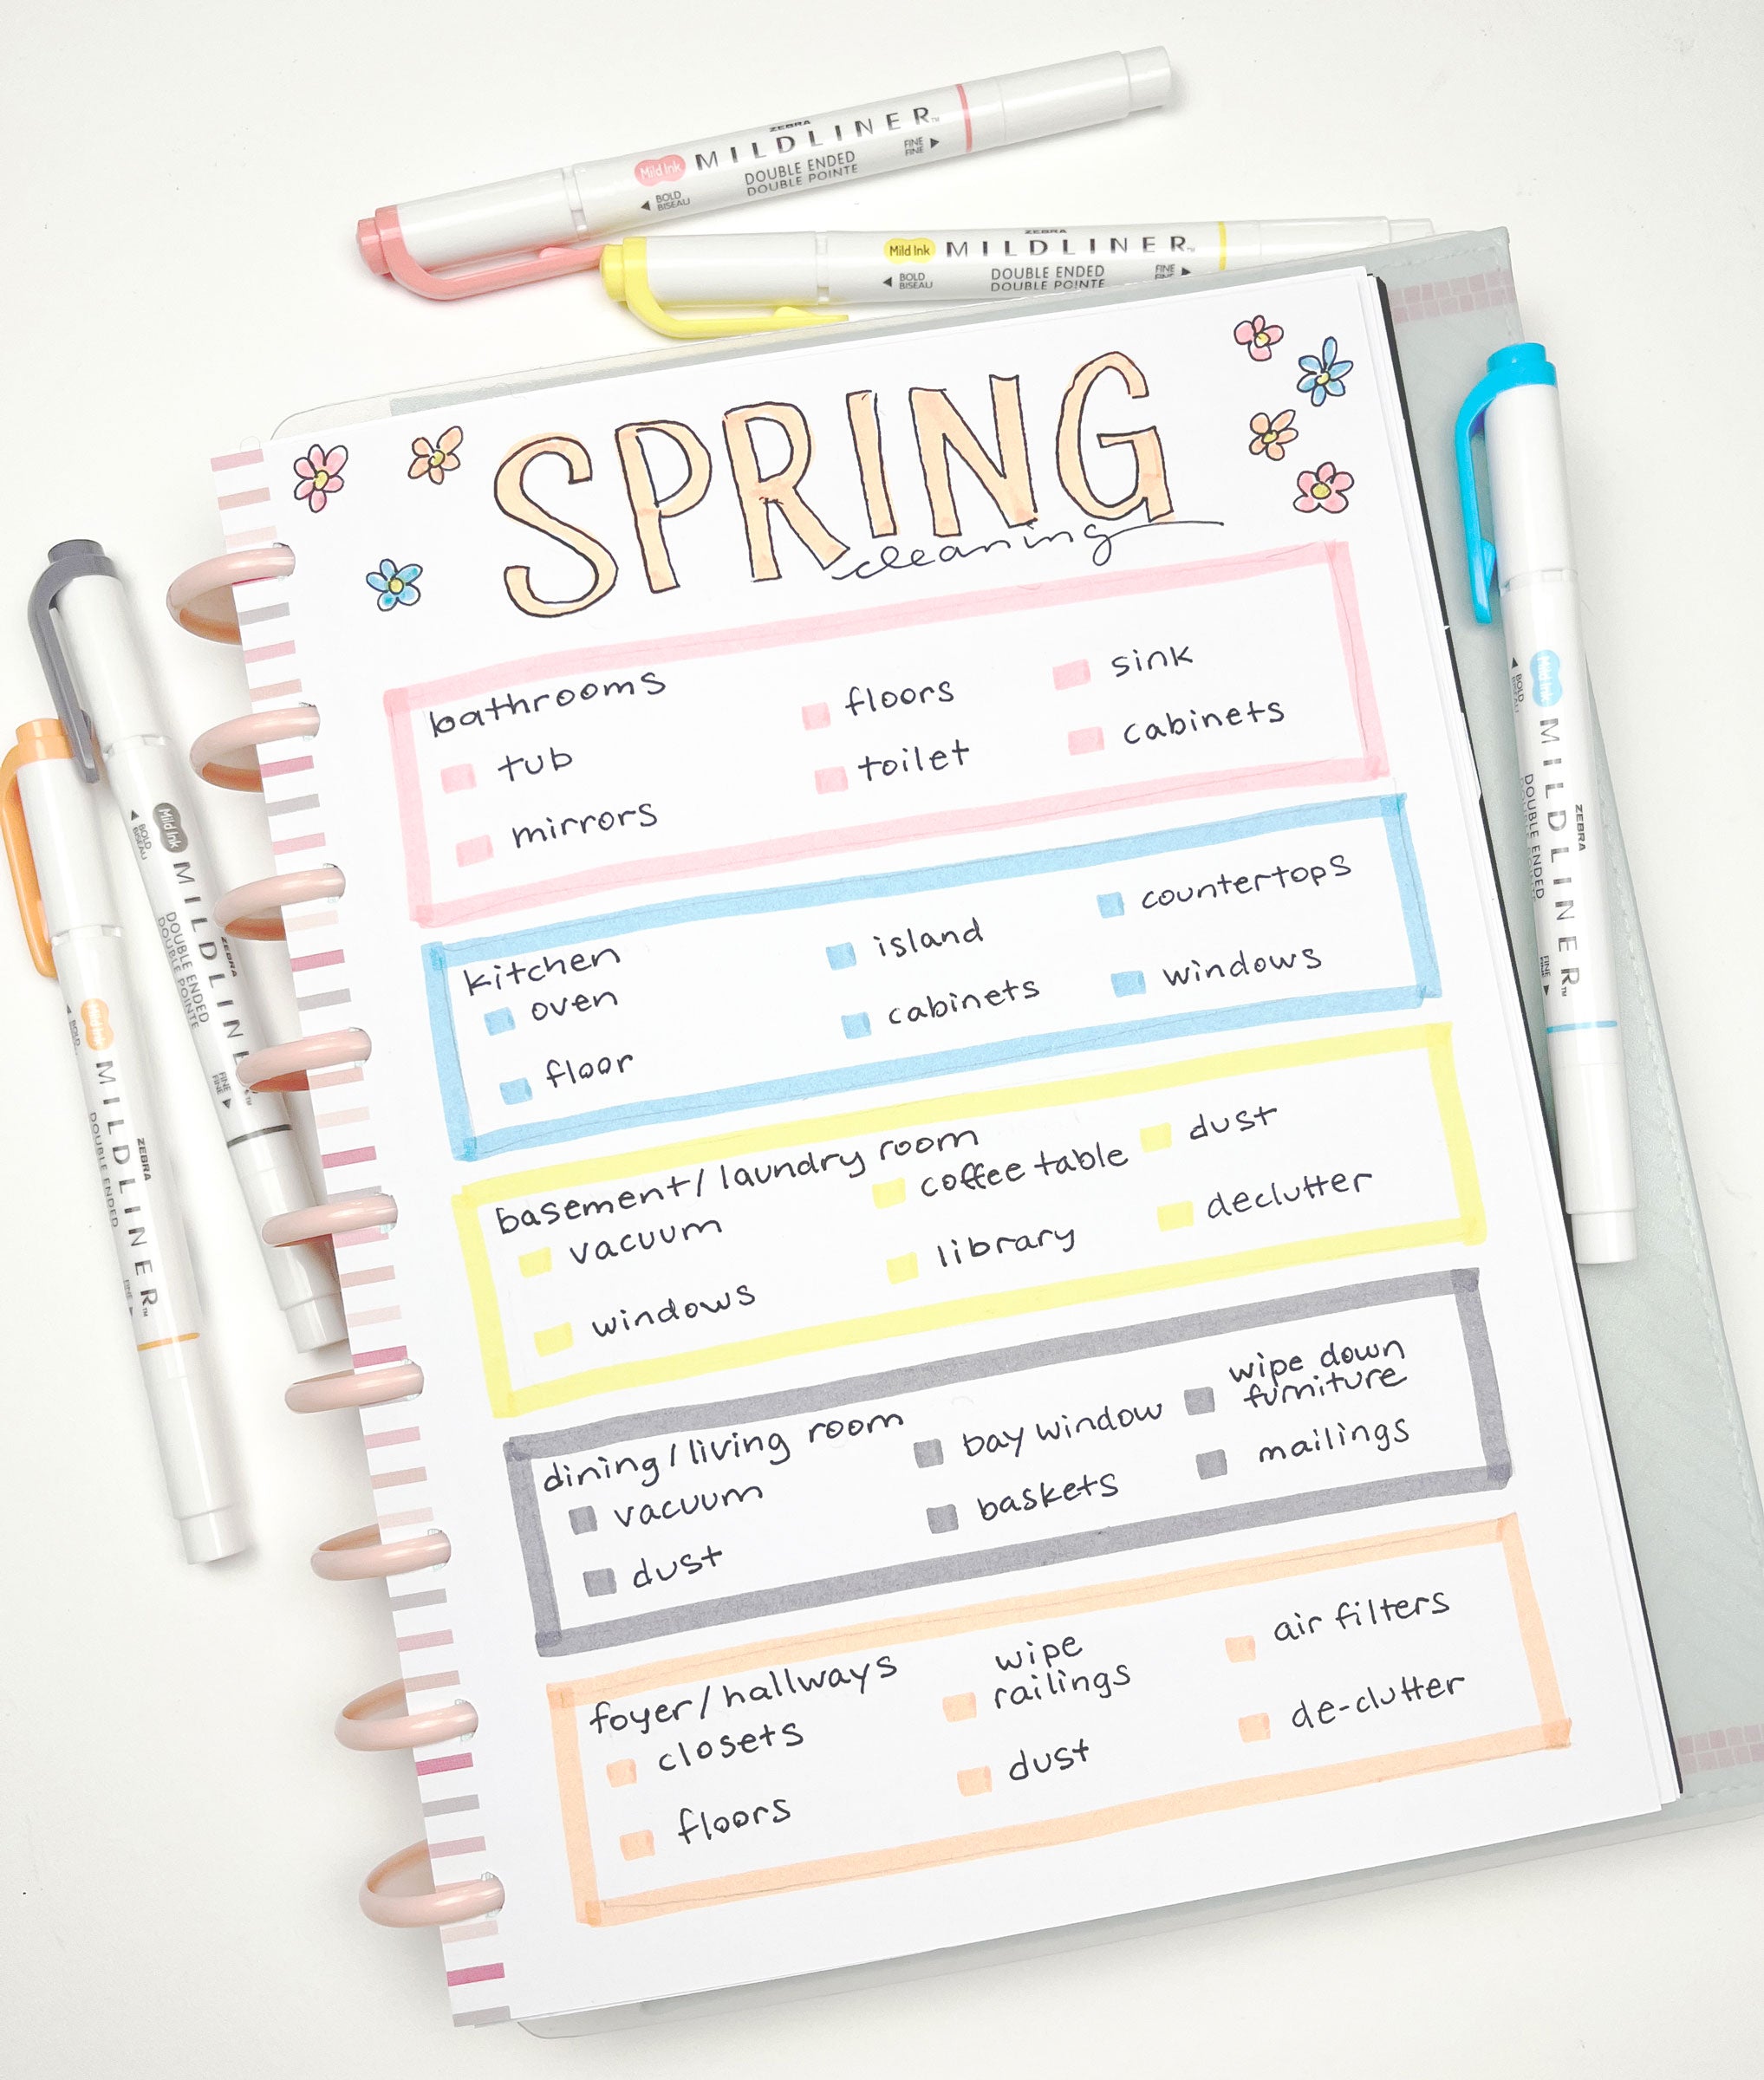 ZEBRA
Mild Ink MILDLINER™
DOUBLE ENDED
DOUBLE POINTE
◀ BOLD
BISEAU
FINE ▶
FINE
ZEBRA
Mild Ink MILDLINER™
DOUBLE ENDED
DOUBLE POINTE
◀ BOLD
BISEAU
FINE ▶
FINE
SPRING
cleaning
bathrooms
tub
mirrors
floors
toilet
sink
cabinets
kitchen
oven
floor
island
cabinets
countertops
windows
basement/laundry room
vacuum
windows
coffee table
library
dust
declutter
dining/living room
vacuum
dust
bay window
baskets
wipe down
furniture
mailings
foyer/hallways
closets
floors
wipe
railings
dust
air filters
de-clutter
ZEBRA
Mild Ink MILDLINER™
DOUBLE ENDED
DOUBLE POINTE
◀ BOLD
BISEAU
FINE ▶
FINE
ZEBRA
MILDLINER™
DOUBLE ENDED
ZEBRA
Mild Ink MILDLINER™
DOUBLE ENDED
◀ BOLD
FINE ▶